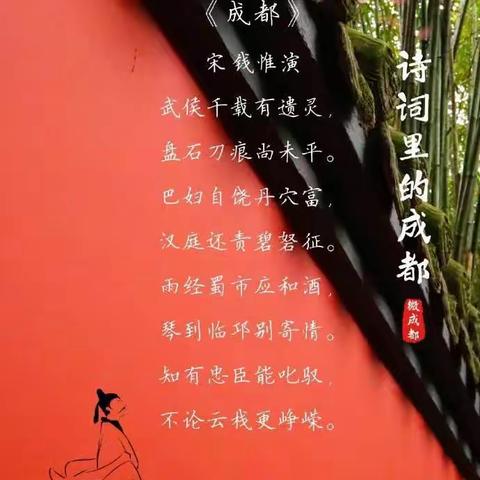 《成都》
宋钱惟演
武侯千载有遗灵，
盘石刀痕尚未平。
巴妇自饶丹穴富，
汉庭还责碧砮征。
雨经蜀市应和酒，
琴到临邛别寄情。
知有忠臣能叱驭，
不论云栈更峥嵘。
诗词里的成都
微成都